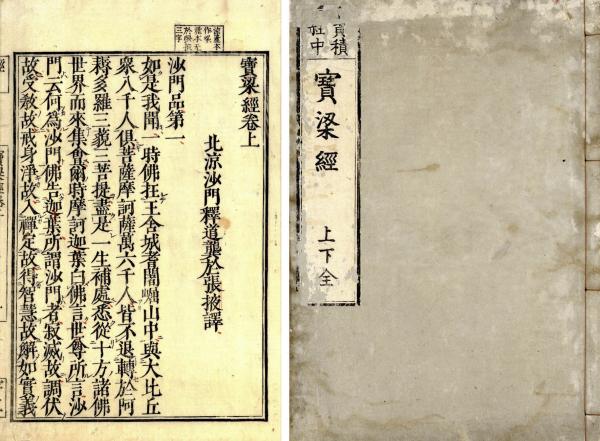 寶梁經卷上
北涼沙門釋道龔於張掖譯
沙門品第一
如是我聞一時佛在王舍城耆闍崛山中與大比丘
衆八千人俱菩薩摩訶薩萬六千人皆不退轉於阿
耨多羅三藐三菩提盡是一生補處悉從十方諸佛
世界而來集會爾時摩訶迦葉白佛言世尊所言沙
門云何爲沙門佛告迦葉所謂沙門者寂滅故調伏
故受敎故戒身淨故入禪定故得智慧故解如實義
寶積
寶梁經
上下全